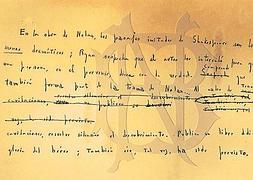 En la obra de Nolan, los pasajes imitados de Shakespeare son los
menos dramáticos; Ryan sospecha que el autor los intercaló para que
una persona, en el porvenir, diera con la verdad. Comprende que
también forma parte de la trama de Nolan. Al cabo de tenaces
cavilaciones
cavilaciones, resuelve silenciar el descubrimiento. Publica un libro dedicado a la
gloria del héroe; también eso, tal vez, estaba previsto.